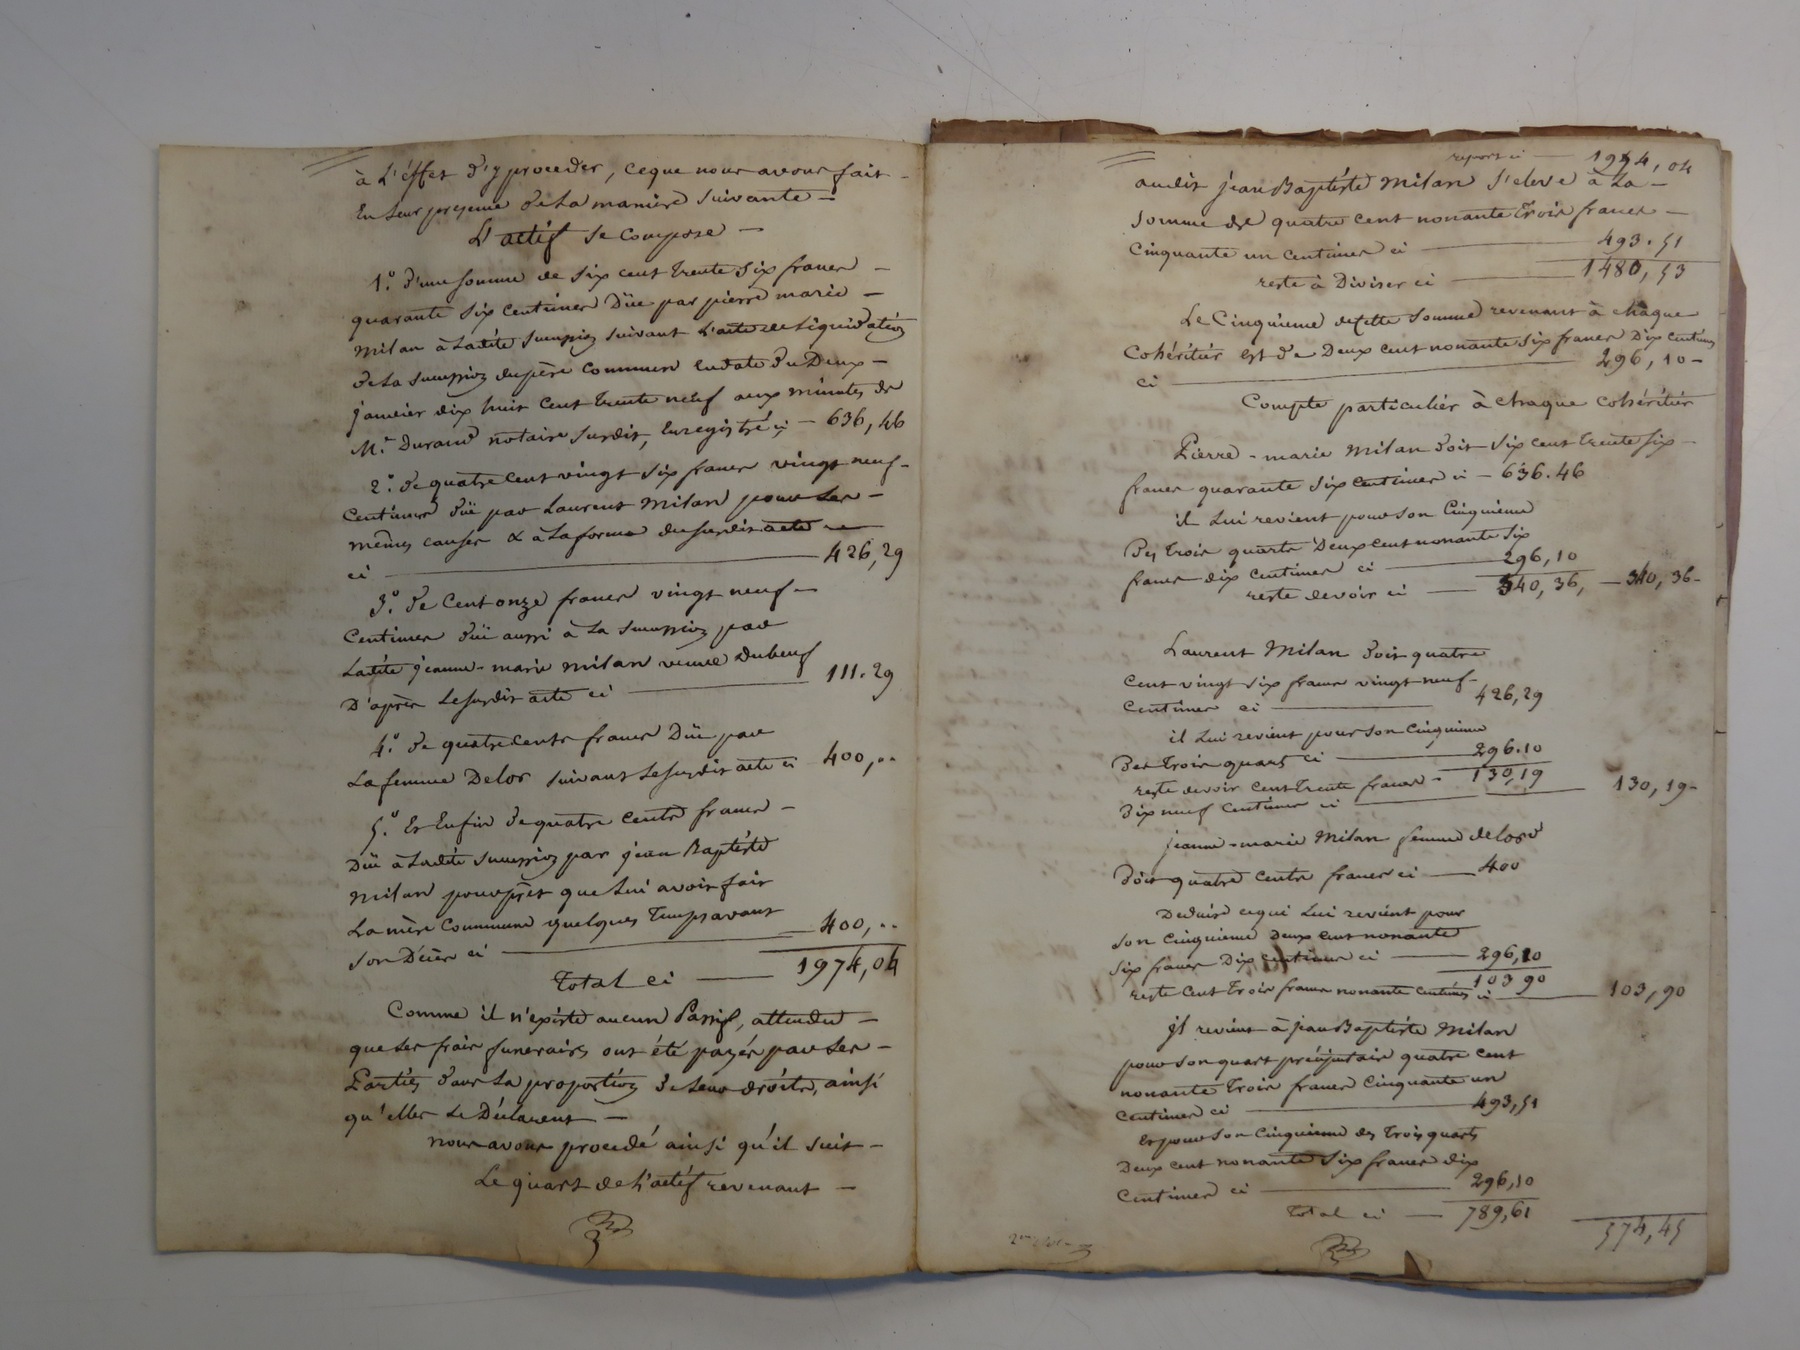 à L'éffet d'y proceder, ceque nous avons fait -
En Leur présence de La maniere suivante =
L'actif se compose -
1.° d'une somme de six cent trente six francs -
quarante six centimes Düe par pierre marie -
Milan à Ladite succession suivant L'acte de Liquidation
de La succession du père commun en date du Deux -
janvier dix huit cent trente neuf aux minutes de
M.e Durand notaire susdit, Enregistré ci - 636, 46
2.° de quatre cent vingt six francs vingt neuf -
centimes dûs par Laurent Milan pour Les -
mêmes causes & à La forme du susdit acte
ci 426, 29
3.° de Cent onze francs vingt neuf -
Centimes dûs aussi à La succession par
Ladite jeanne-marie milan veuve Dubeuf
D'après Lesusdit acte ci 111.29
4.° de quatre cents francs Dûs par
La femme Delor suivant Lesusdit acte ci 400,..
5.° Et Enfin de quatre cents francs -
Dûs à Ladite succession par jean Baptiste
Milan pour prêt que Lui avoit fait
La mère Commune quelques Temps avant
son Décès ci 400,..
Total ci 1974,04
Comme il n'existe aucun Passif, attendu -
que Les frais funeraires ont été payés par Les -
Parties dans La proportion de Leurs droits, ainsi
qu'elles Le Déclarent -
nous avons procedé ainsi qu'il suit -
Le quart de L'actif revenant -
report ci 1974,04
audit jean Baptiste Milan s'éleve à La -
somme de quatre cent nonante trois francs -
cinquante un centimes ci 493.51
reste à Diviser ci 1480,53
Le Cinquieme de Cette Somme revenant à chaque
Cohéritier est de Deux cent nonante six francs Dix centimes
ci 296,10 -
Compte particulier à chaque cohéritier
Pierre-marie Milan doit six cent trente six -
francs quarante six centimes ci - 636.46
il Lui revient pour son Cinquieme
Des trois quarts Deux cent nonante six
francs dix centimes ci 296,10
reste devoir ci 340,36, - 340,36-
Laurent Milan doit quatre
cent vingt six francs vingt neuf -
Centimes ci 426,29
il Lui revient pour son Cinquieme
Des Trois quarts ci 296.10
reste devoir cent trente francs - 130,19
Dix neuf centimes ci 130,19-
jeanne-marie Milan femme delord
doit quatre cents francs ci 400
Deduire cequi Lui revient pour
son cinquieme Deux cent nonante
six francs Dix centimes ci 296,10
103 90
reste cent trois francs nonante centimes ci 103,90
Il revient à jean Baptiste Milan
pour son quart préciputaire quatre cent
nonante trois francs cinquante un
centimes ci 493,51
Et pour son cinquieme des trois quarts
Deux cent nonante six francs dix
Centimes ci 296,10
Total ci 789,61
574,45